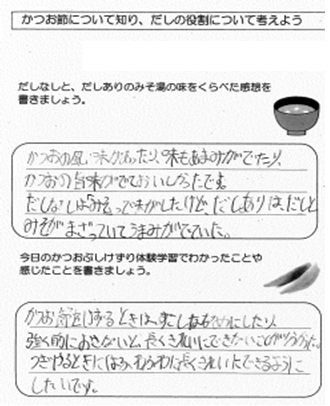 かつお節について知り、だしの役割について考えよう
だしなしと、だしありのみそ湯の味をくらべた感想を
書きましょう。
かつおの風味があったり、味もあまみがでたり、
かつおの旨味がでておいしかったです。
だしなしは「みそ」って味がしたけど、だしありは、だしと
みそがまざっていてうまみがでていた。
今日のかつおぶしけずり体験学習でわかったことや
感じたことを書きましょう。
かつお節をけずるときは、ななめにしたり、
強く前におさないと、長くきれいにできないことがわかった。
つぎやるときには、長くきれいにできるように
したいです。